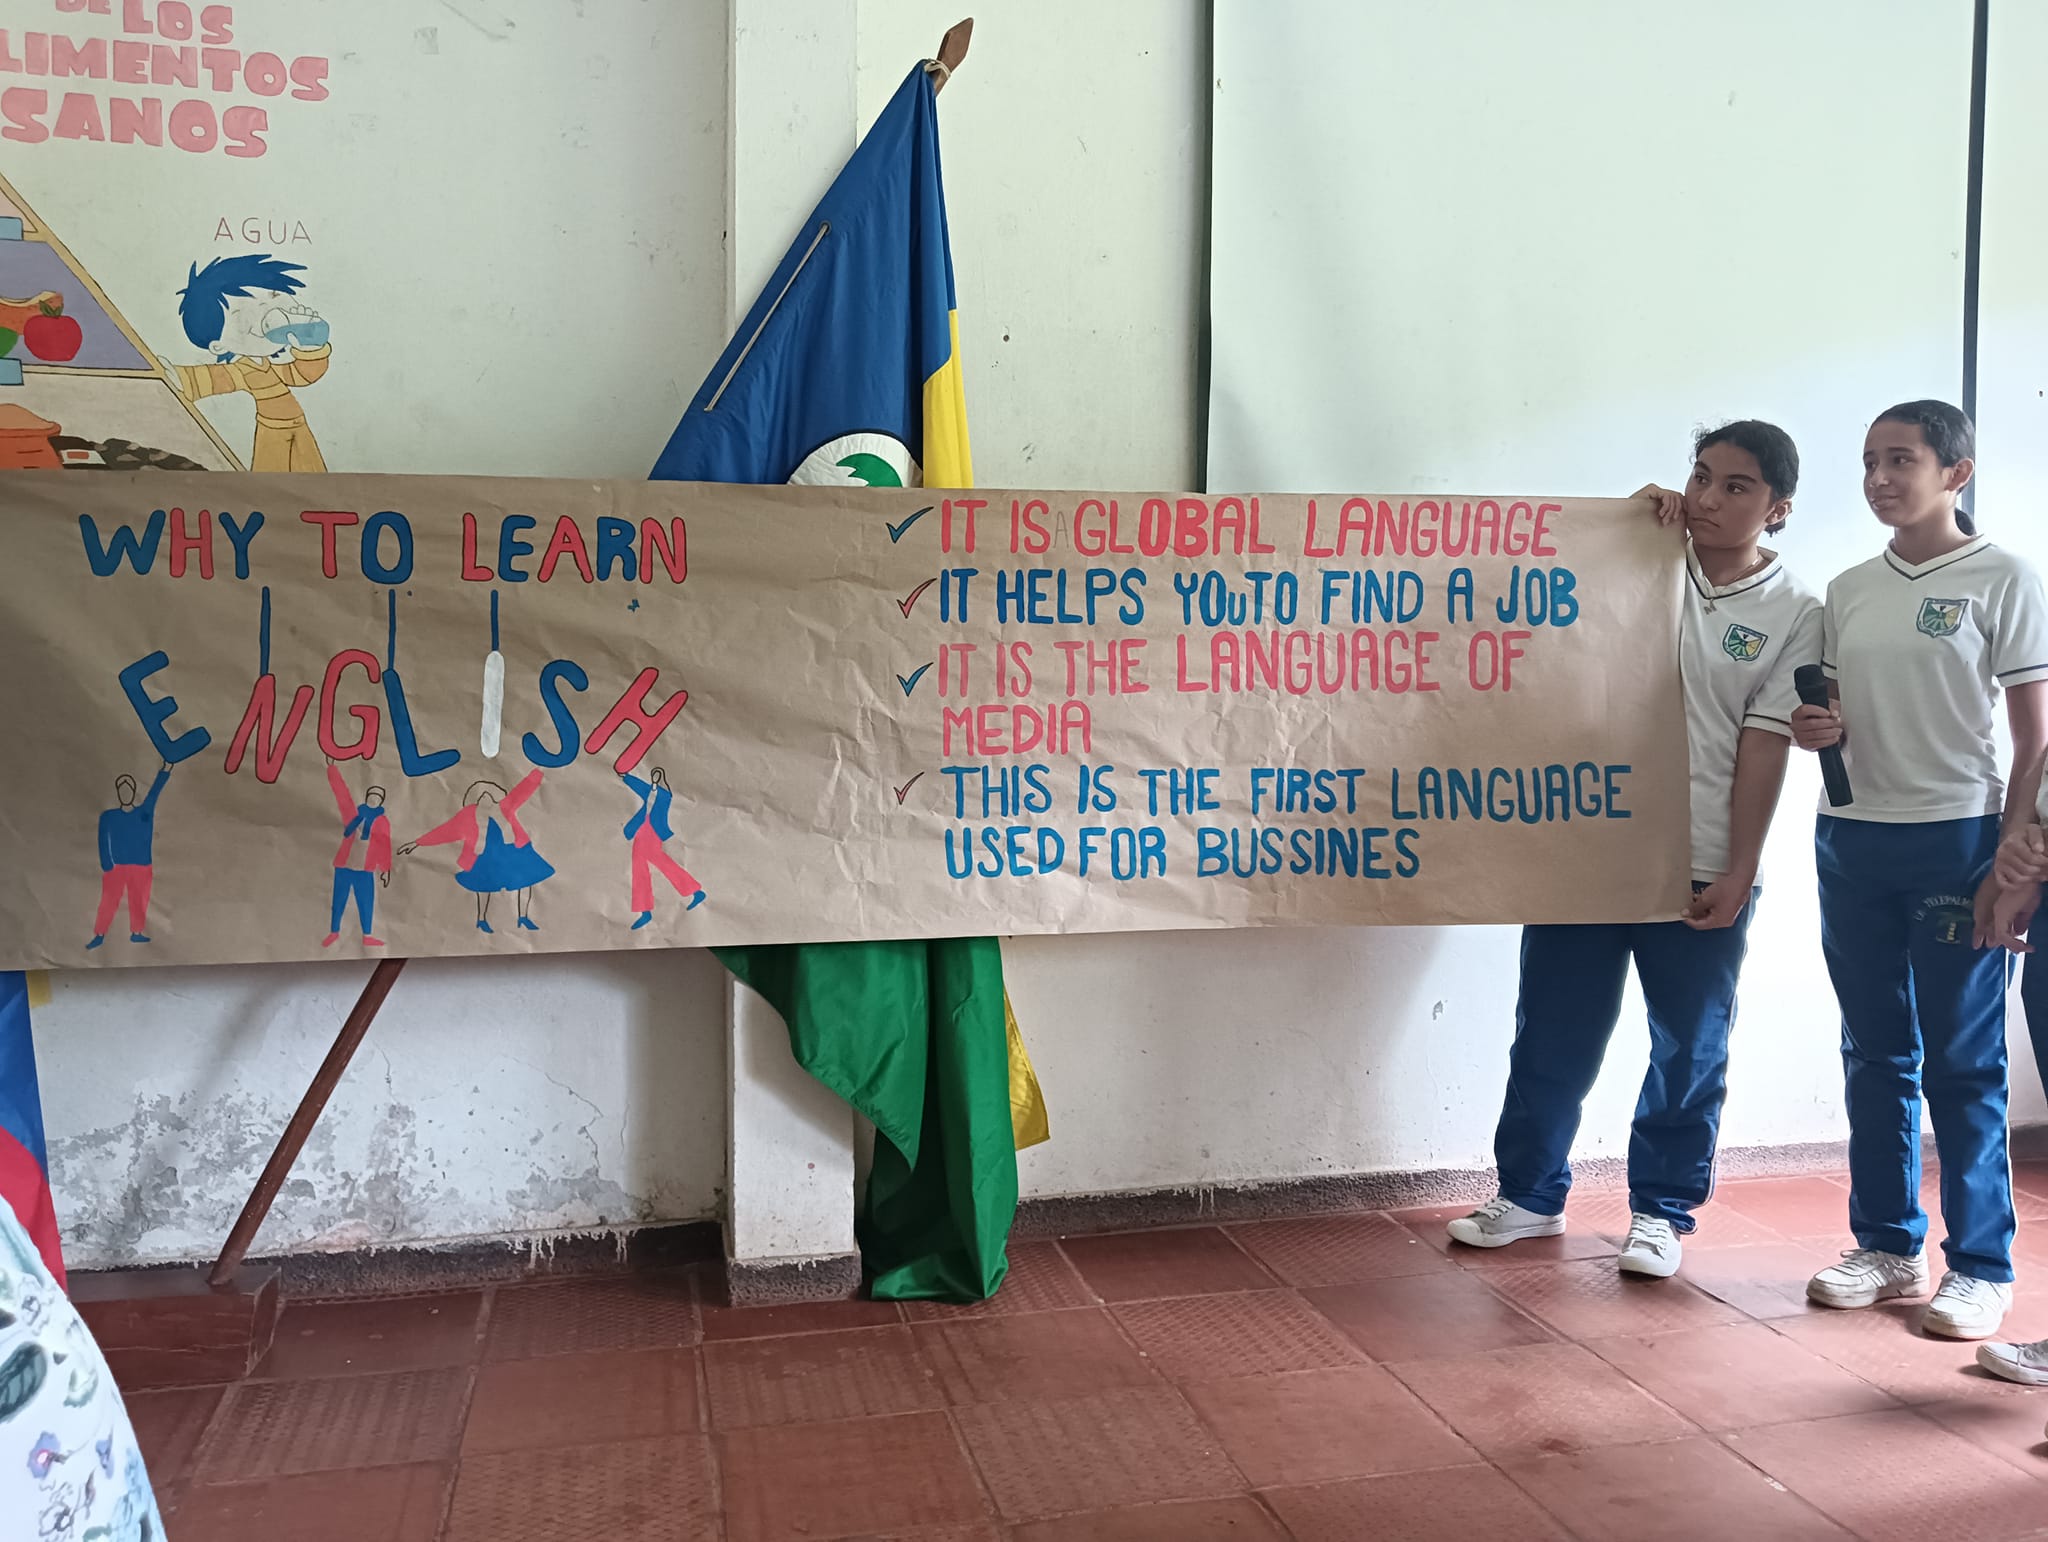 DE LOS
ALIMENTOS
SANOS
AGUA
WHY TO LEARN
ENGLISH
IT IS A GLOBAL LANGUAGE
IT HELPS YOU TO FIND A JOB
IT IS THE LANGUAGE OF
MEDIA
THIS IS THE FIRST LANGUAGE
USED FOR BUSSINES